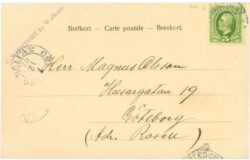 Brefkort – Carte postale – Brevkort.
Herr Magnus Olsson
Husargatan 19
Göteborg
(Adr. Rosén)